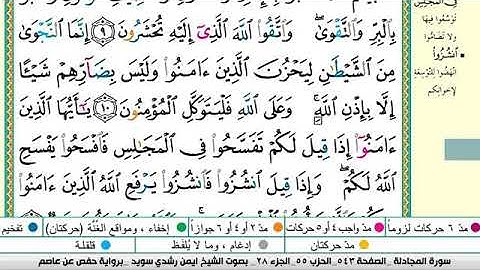 بِٱلۡبِرِّ وَٱلتَّقۡوَىٰۖ وَٱتَّقُواْ ٱللَّهَ ٱلَّذِيٓ إِلَيۡهِ تُحۡشَرُونَ ٩ إِنَّمَا ٱلنَّجۡوَىٰ
مِنَ ٱلشَّيۡطَٰنِ لِيَحۡزُنَ ٱلَّذِينَ ءَامَنُواْ وَلَيۡسَ بِضَآرِّهِمۡ شَيۡـًٔا
إِلَّا بِإِذۡنِ ٱللَّهِۚ وَعَلَى ٱللَّهِ فَلۡيَتَوَكَّلِ ٱلۡمُؤۡمِنُونَ ١٠ يَٰٓأَيُّهَا ٱلَّذِينَ
ءَامَنُوٓاْ إِذَا قِيلَ لَكُمۡ تَفَسَّحُواْ فِي ٱلۡمَجَٰلِسِ فَٱفۡسَحُواْ يَفۡسَحِ
ٱللَّهُ لَكُمۡۖ وَإِذَا قِيلَ ٱنشُزُواْ فَٱنشُزُواْ يَرۡفَعِ ٱللَّهُ ٱلَّذِينَ ءَامَنُواْ
توسعوا فيها
ولا تضاموا
انشزوا
انهضوا للتوسعة
لإخوانكم
مدّ ٦ حركات لزوماً مدّ واجب ٤ أو ٥ حركات مدّ ٢ أو ٤ أو ٦ جوازاً إخفاء، ومواقع الغُنَّة (حركتان) تفخيم
مدّ حركتان إدغام، وما لا يُلفَظ قلقلة
سورة المجادلة _الصفحة ٥٤٣_ الحزب ٥٥_ الجزء ٢٨_ بصوت الشيخ ايمن رشدي سويد _برواية حفص عن عاصم